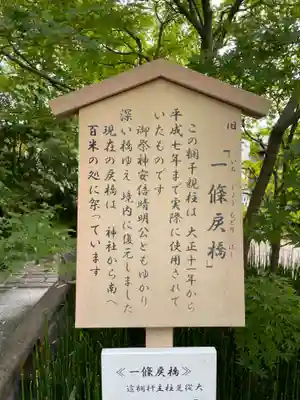 旧「一條戻橋」
いちじょうもどりはし
この欄干親柱は 大正十一年から
平成七年まで実際に使用されて
いたものです
御祭神安倍晴明公ともゆかり
深い橋ゆえ 境内に復元しました
現在の戻橋は 神社から南へ
百米の処に祭っています
≪一條戻橋≫
這欄杆主柱是從大